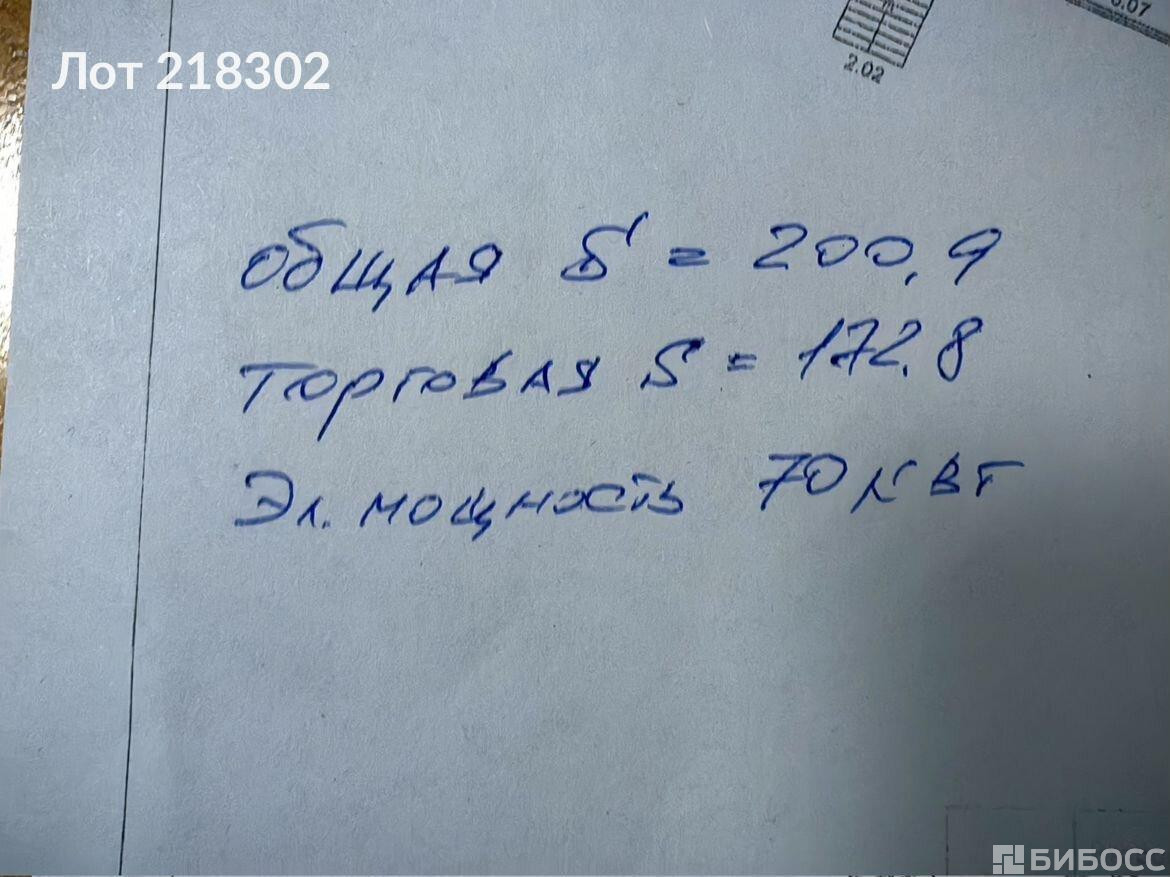 Лот 218302
2.02
общая S = 200,9
торговая S = 172,8
Эл. мощность 70 кВт
БИБОСС